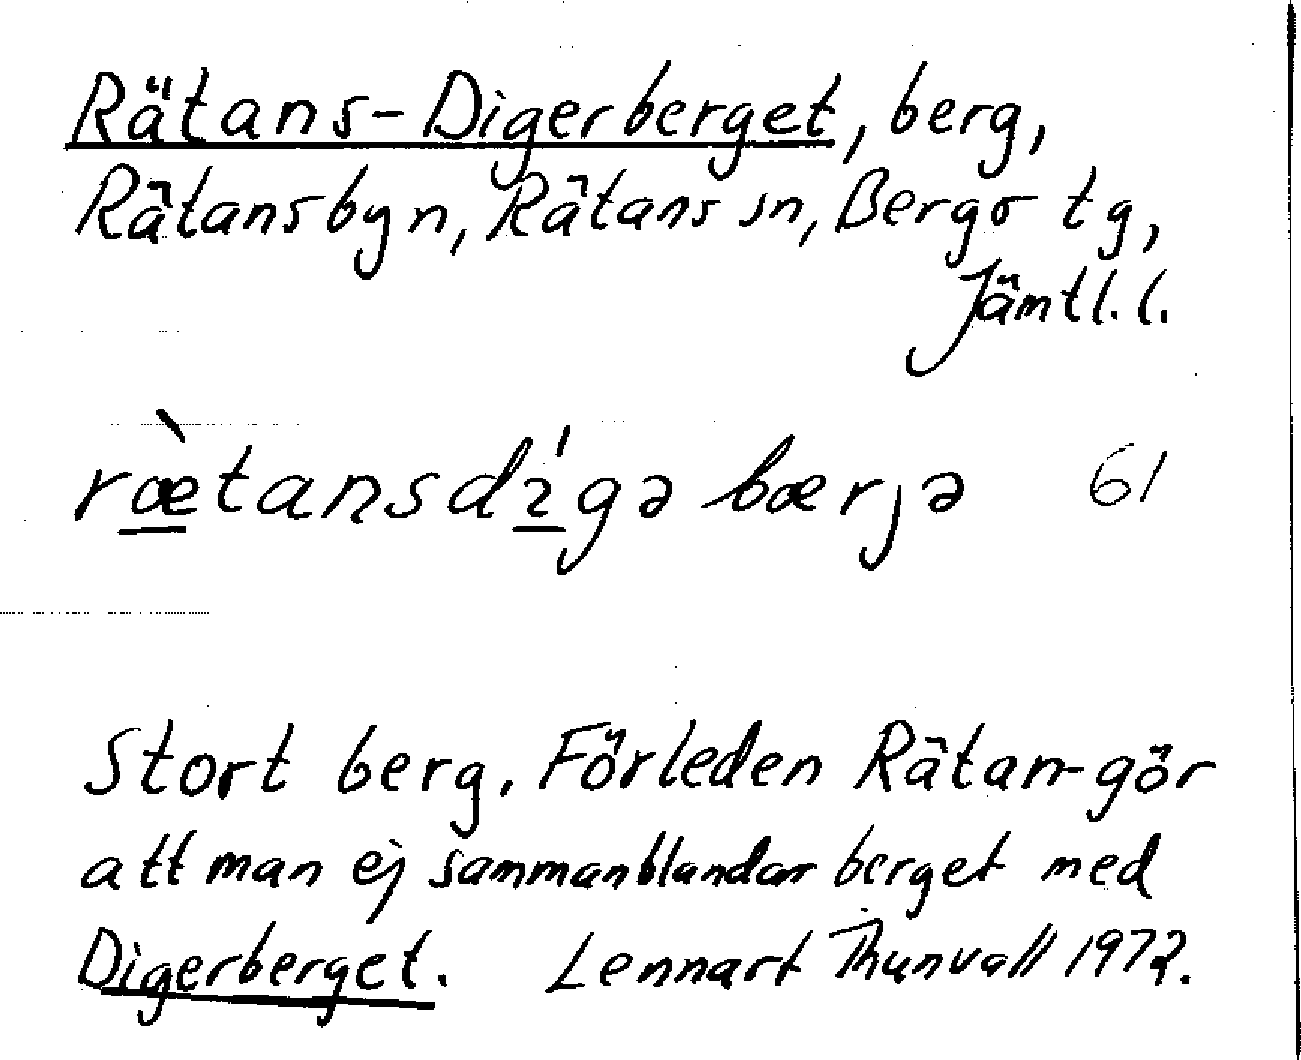 Rätans-Digerberget, berg,
Rätansbyn, Rätans sn, Bergs tg,
Jämtl.l.
ræ̀tansdı́gə bærjə 61
Stort berg. Förleden Rätan- gör
att man ej sammanblandar berget med
Digerberget. Lennart Thunvall 1972.